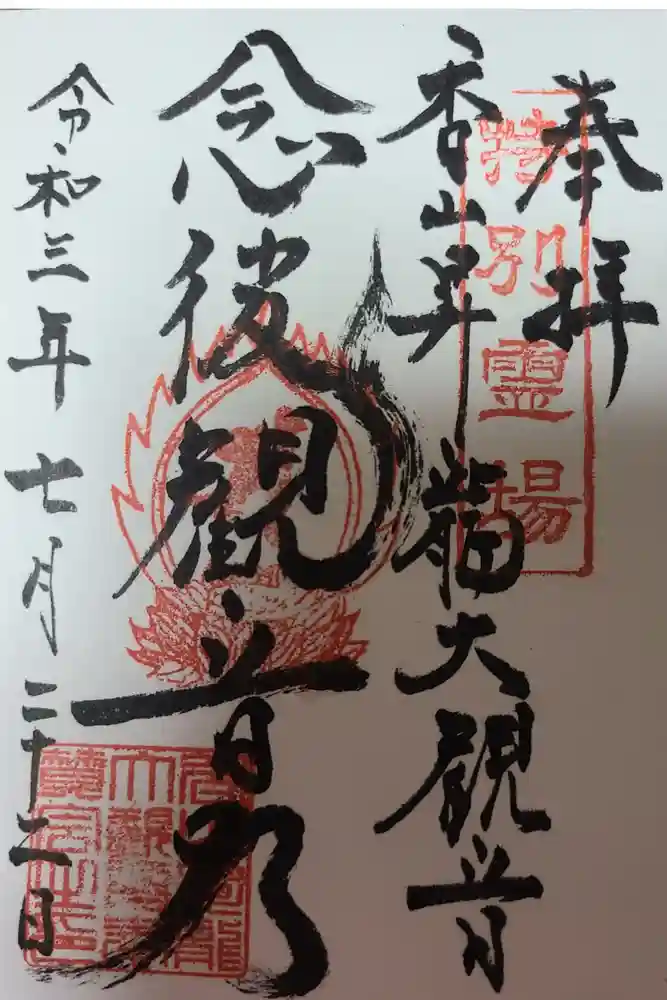 奉拝
特別霊場
香山昇龍大観音
念彼観音力
令和三年七月二十二日